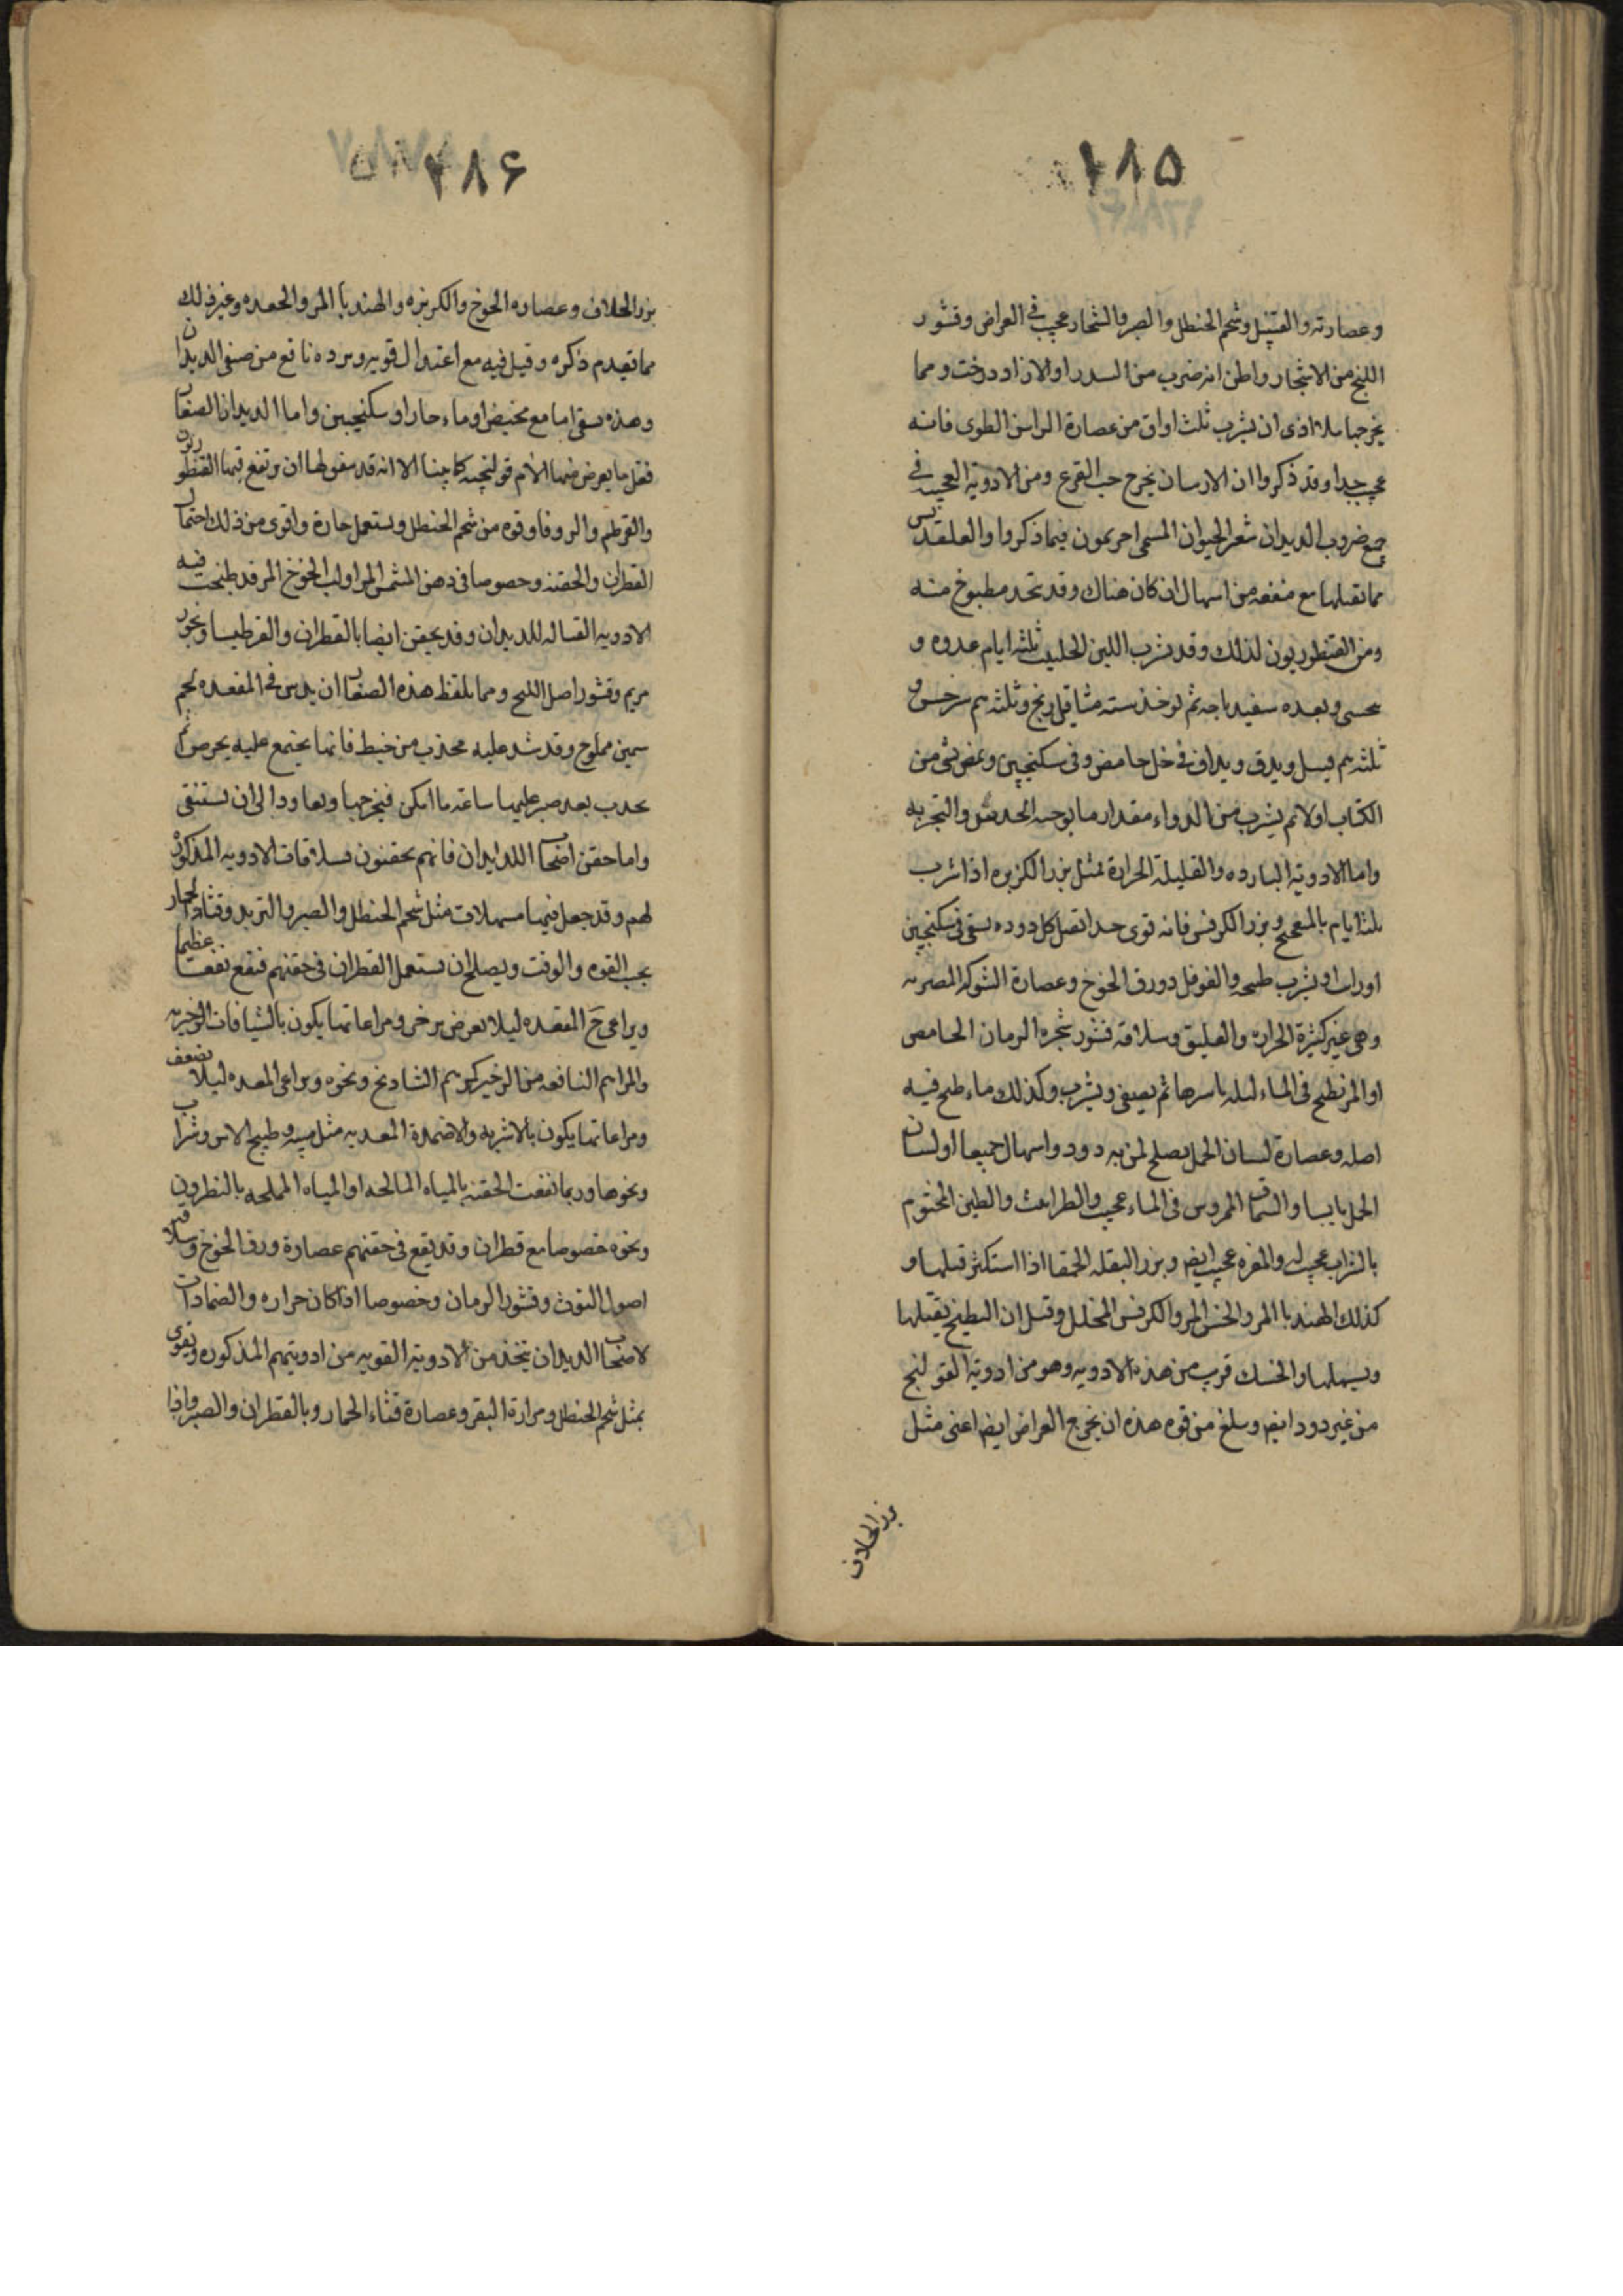 ۱۸۵
وعصارته والقنبيل وشحم الحنطل والصبر والشحار عجيب فى العراض وقشور
اللبخ من الاشجار واظن انه ضرب من السدر او الازاد درخت ومما
يخرجها بلا اذى ان يشرب ثلث اواق من عصارة الراسن الطرى فانه
عجيب جدا وقد ذكروا ان الارسان يخرج حب القرع ومن الادوية العجيبه فى
جميع ضروب الديدان شعر الحيوان المسمى احريمون فيما ذكروا والعلقديس
مما تقتلها مع منفعه من اسهال ان كان هناك وقد يتخذ مطبوخ منه
ومن القنطوريون لذلك وقد يشرب اللبن الحليب ثلثه ايام غدوه و
يتحسى وبعده سفيدباجه ثم يوخذ سته مثاقيل برنج وثلثه سرخس و
ثلثه قسيل ويدق ويداف فى خل حامض وفى سكنجبين ويمص شئ من
الكباب اولا ثم يشرب من الدواء مقدار ما يوجبه الحدس والتجربه
واما الادوية البارده والقليلة الحرارة فمثل بزر الكزبره اذا شرب
ثلثه ايام بالميفختج وبزر الكرفس فانه قوى جدا تقتل كل دوده يسقى فى سكنجبين
او رائب او يشرب طبيخه والفوفل وورق الخوخ وعصارة الشوكه المصريه
وهى غير كثيرة الحراره والعليق وسلاقه قشور شجره الرمان الحامض
او المر تطبخ فى الماء ليله باسرها ثم يصفى ويشرب وكذلك ماء طبخ فيه
اصله وعصارة لسان الحمل يصلح لمن به دود واسهال جميعا او لسان
الحمل يابسا والسماق الممروس فى الماء عجيب والطراثيث والطين المختوم
بالشراب عجيب له والمغره عجيب ايضا وبزر البقله الحمقا اذا استكثر قتلها و
كذلك الهندبا المر والخس المر والكرفس المخلل وقيل ان البطيخ يقتلها
ويسهلها والخسك قريب من هذه الادويه وهو من ادوية القولنج
من غير دود ايضا وبلغ من قوه هذه ان يخرج العراض ايضا اعنى مثل
بزر الخلاف
۱۸۶
بزر الخلاف وعصاره الخوخ والكزبره والهندبا المر والجعده وغير ذلك
مما تقدم ذكره وقيل فيه مع اعتدال قويه وبرده نافع من صنفى الديدان
وهذه يسقى اما مع مخيض او ماء حار او سكنجبين واما الديدان الصغار
فقل ما يعرض منها الام قولنجيه كما بينا الا انه قد سقوطها ان يرتفع فيها القنطوريون
والقرطم والزوفا وقوه من شحم الحنطل ويستعمل حارة واقوى من ذلك احتمال
القطران والحقنه وخصوصا فى دهن المشمش المر او لب الخوخ المر قد طبخت فيه
الادويه القتاله للديدان وقد يحقن ايضا بالقطران والقرطيسا وبخور
مريم وقشور اصل اللبخ ومما يلقط هذه الصغار ان يدس فى المقعده لحم
سمين مملوح وقد شد عليه مجذب من خيط فانها يجتمع عليه بحرص ثم
يجذب بعد صبر عليها ساعة ما امكن فيخرجها ويعاود الى ان يستنقى
واما حقن اصحاب الديدان فانهم يحقنون بسلاقات الادويه المذكوره
لهم وقد جعل فيها مسهلات مثل شحم الحنطل والصبر والتربد وقثاء الحمار
بحسب القوه والوقت ويصلح ان يستعمل القطران فى حقنهم فينفع نفعا عظيما
ويراعى ح المقعده ليلا يعرض ترخى ومراعاتها يكون بالشيافات الزخيريه
والمراهم النافعه من الزخير كمرهم الشادنج ونحوه ويراعى المعده ليلا يضعف
ومراعاتها يكون بالاشربه والاضمدة المعديه مثل ميبه وطبيخ الاس وشراب
ونحوها وربما نفعت الحقنه بالمياه المالحه او المياه المملحه بالنطرون
ونحوه خصوصا مع قطران وقد يقع فى حقنهم عصارة ورق الخوخ وسلاقه
اصول التوث وقشور الرمان وخصوصا اذا كان حراره والضمادات
لاصحاب الديدان يتخذ من الادوية القويه من ادويتهم المذكوره وتقوى
بمثل شحم الحنطل ومرارة البقر وعصارة قثاء الحمار وبالقطران والصبر واذا